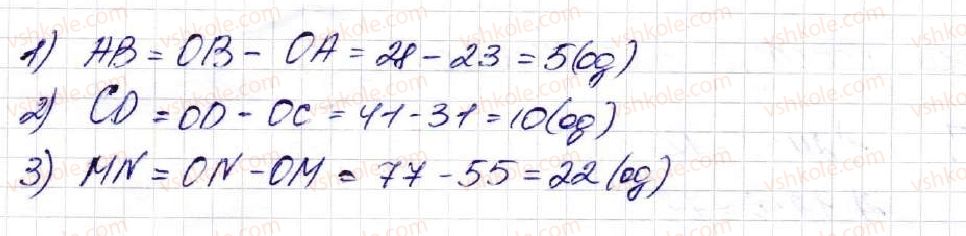 1) AB = OB - OA = 28 - 23 = 5(од)
2) CD = OD - OC = 41 - 31 = 10(од)
3) MN = ON - OM = 77 - 55 = 22(од)
vshkole.com